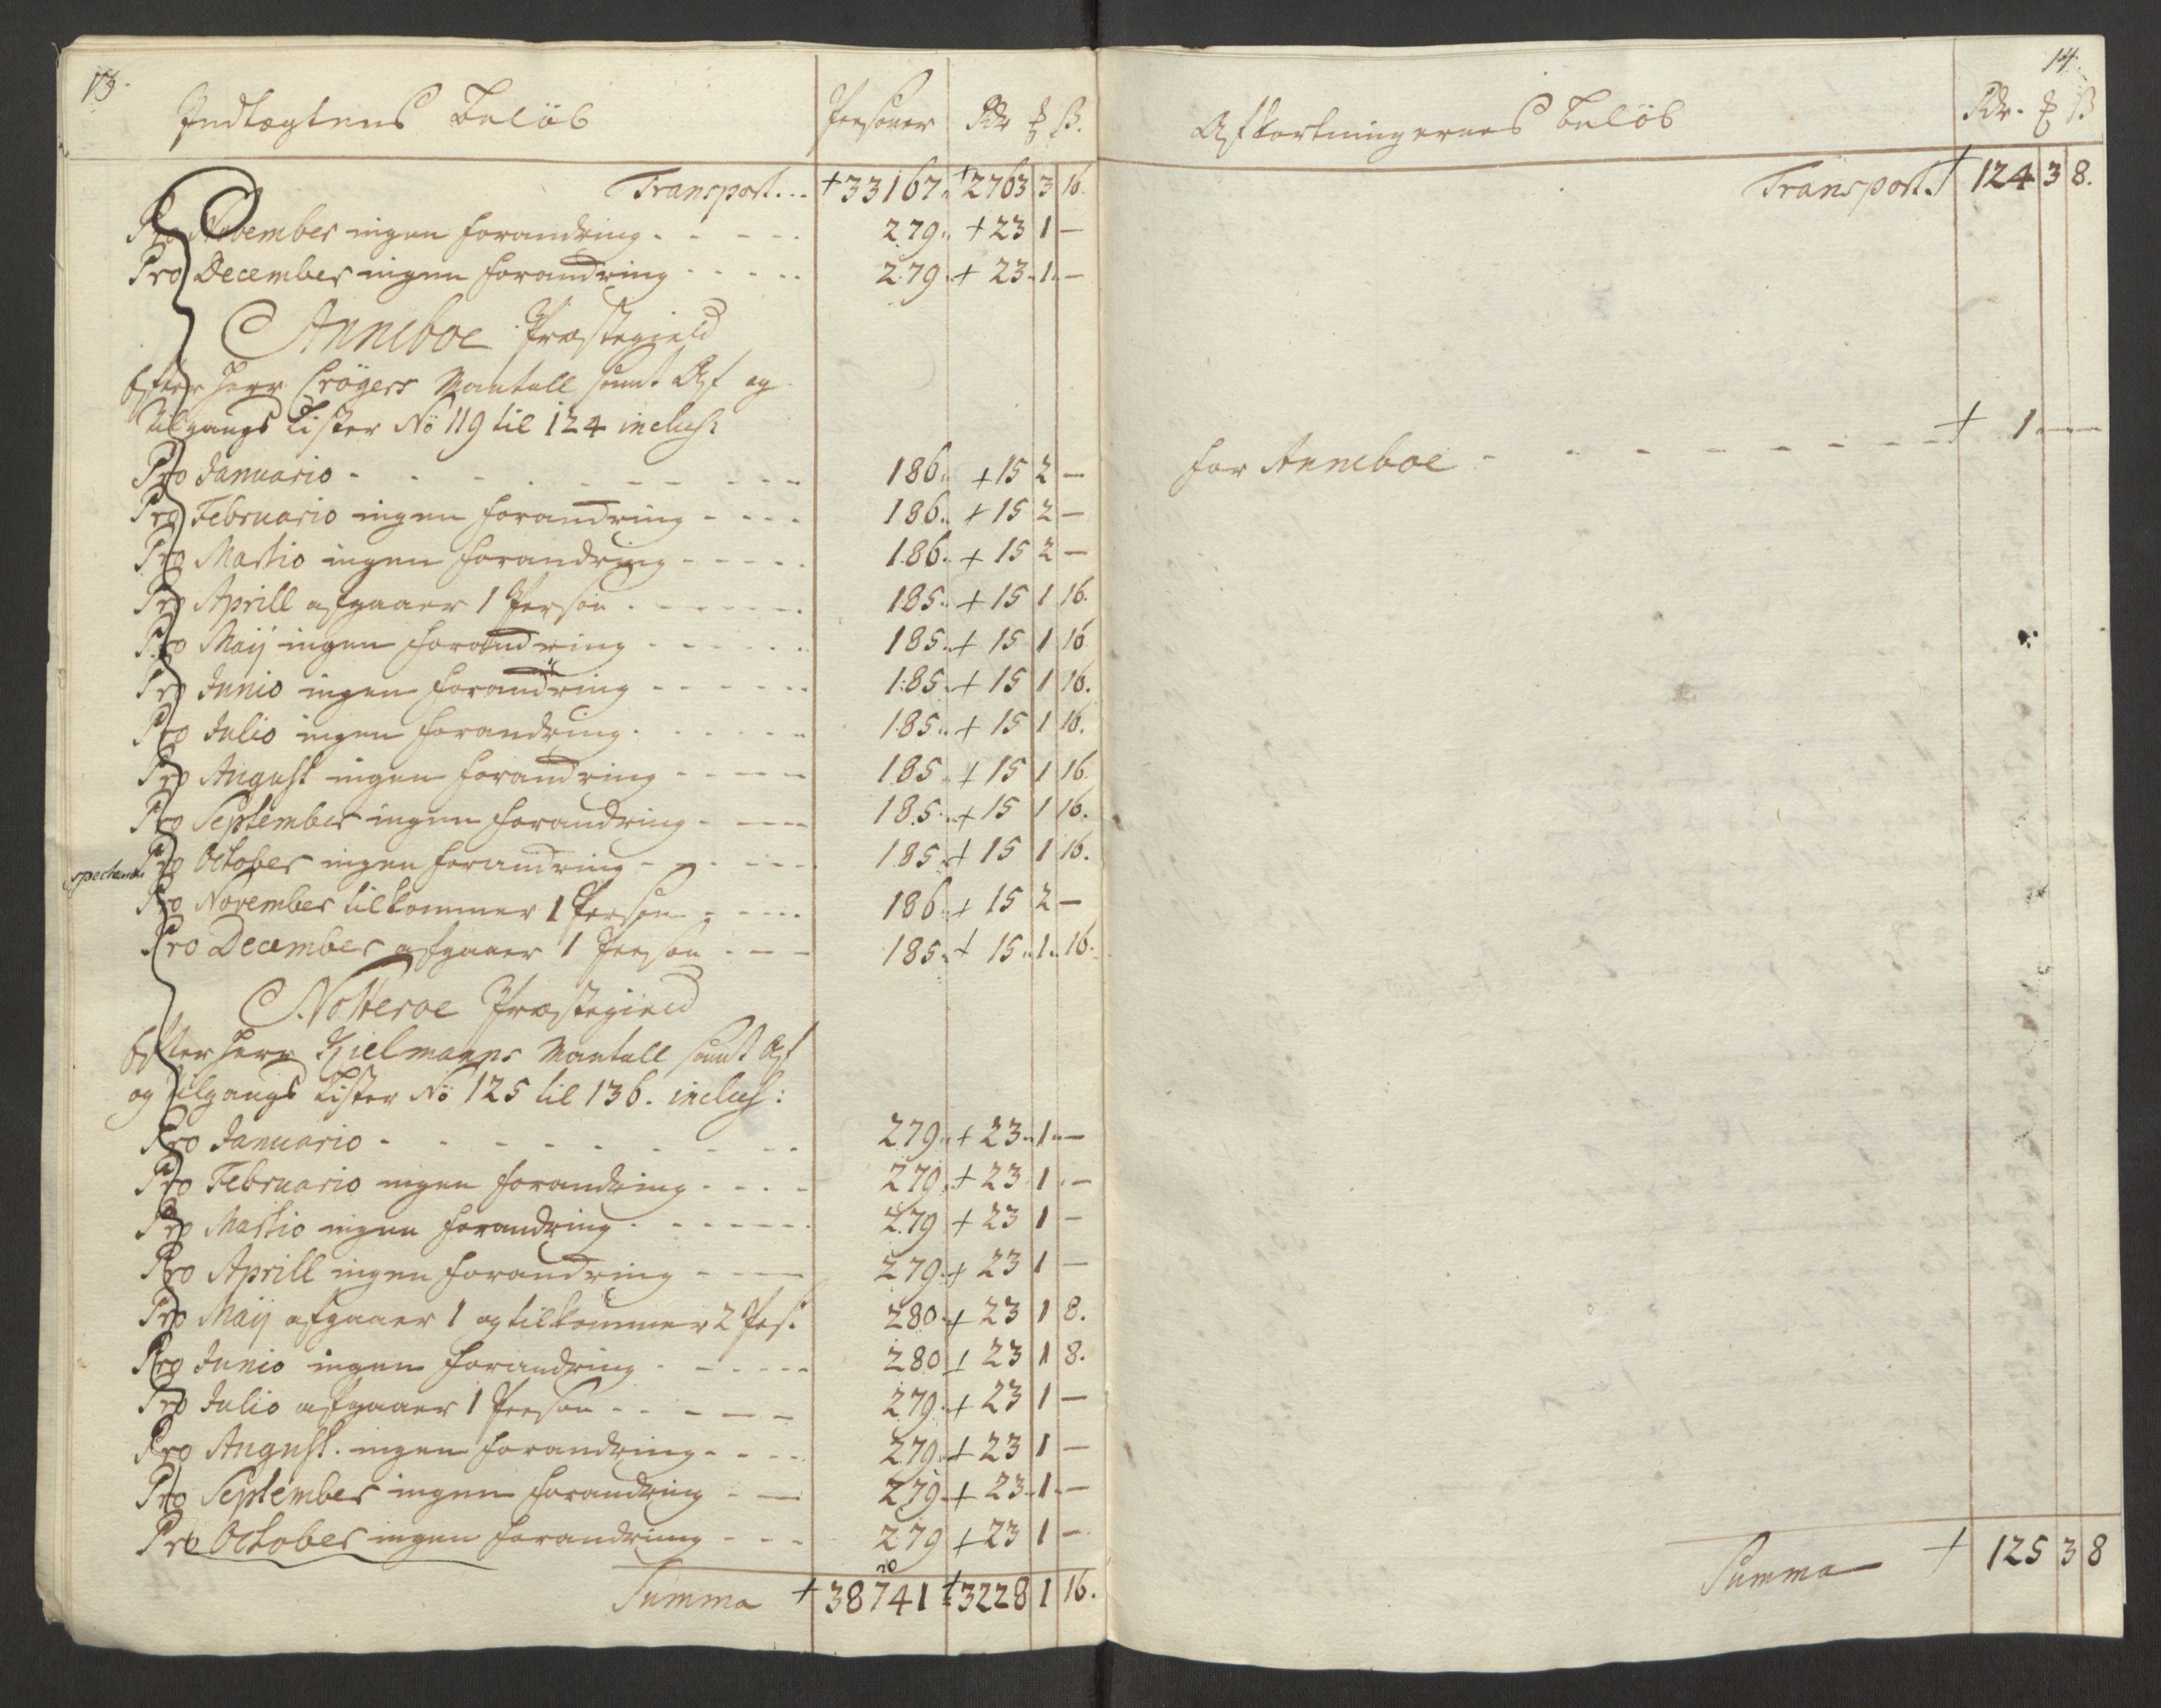 13.
Indtægtens Beløb Persohner Rdr ꝸ ß.
Transport... + 33167. + 2763 3 16.
Pro November ingen forandring - - - - - 279. + 23 1 —
Pro December ingen forandring - - - - - 279. + 23. 1. —
Anneboe Præstegield
Efter Herr Crøgers Mantall samt Af og
tilgangs Lister No 119 til 124 inclus:
Pro Januario - - - - - - - - 186. + 15 2 —
Pro Februario ingen forandring - - - - 186. + 15 2 —
Pro Martio ingen forandring - - - - - 186. + 15 2 —
Pro Aprill afgaaer 1 Person - - - - - - 185. + 15 1 16.
Pro Maij ingen forandring - - - - - - 185. + 15 1 16
Pro Junio ingen forandring - - - - - - 185. + 15 1 16.
Pro Julio ingen forandring - - - - - - 185. + 15 1 16.
Pro August ingen forandring - - - - - 185. + 15 1 16.
Pro September ingen forandring - - - - 185. + 15 1 16.
Pro October ingen forandring - - - - - 185. + 15 1 16.
Pro November tilkommer 1 Person - - - - 186. + 15 2 —
Pro December afgaaer 1 Person - - - 185. + 15. 1. 16.
Nötteroe Præstegield
Efter Herr Kielmanns Mantall samt Af
og tilgangs Lister No 125 til 136. inclus:
Pro Januario - - - - - - - - 279. + 23. 1. —
Pro Februario ingen forandring - - - - 279. + 23 1 —
Pro Martio ingen forandring - - - - - - 279 + 23 1 —
Pro Aprill ingen forandring - - - - 279. + 23 1 —
Pro Maij afgaaer 1 og tilkommer 2 Pers: 280. + 23 1 8.
Pro Junio ingen forandring - - - - - 280 + 23 1 8.
Pro Julio afgaaer 1 Person - - - - - 279. + 23 1 —
Pro August. ingen forandring - - - - 279. + 23 1 —
Pro September ingen forandring - - 279. + 23. 1. —
Pro October ingen forandring - - - 279 + 23 1 —
Summa + 38741 + 3228 1 16.
14.
Afkortningernes Beløb Rdr. ꝸ ß
Transport. + 124 3 8.
for Anneboe - - - - - - - - + 1. — —
Summa + 125 3 8